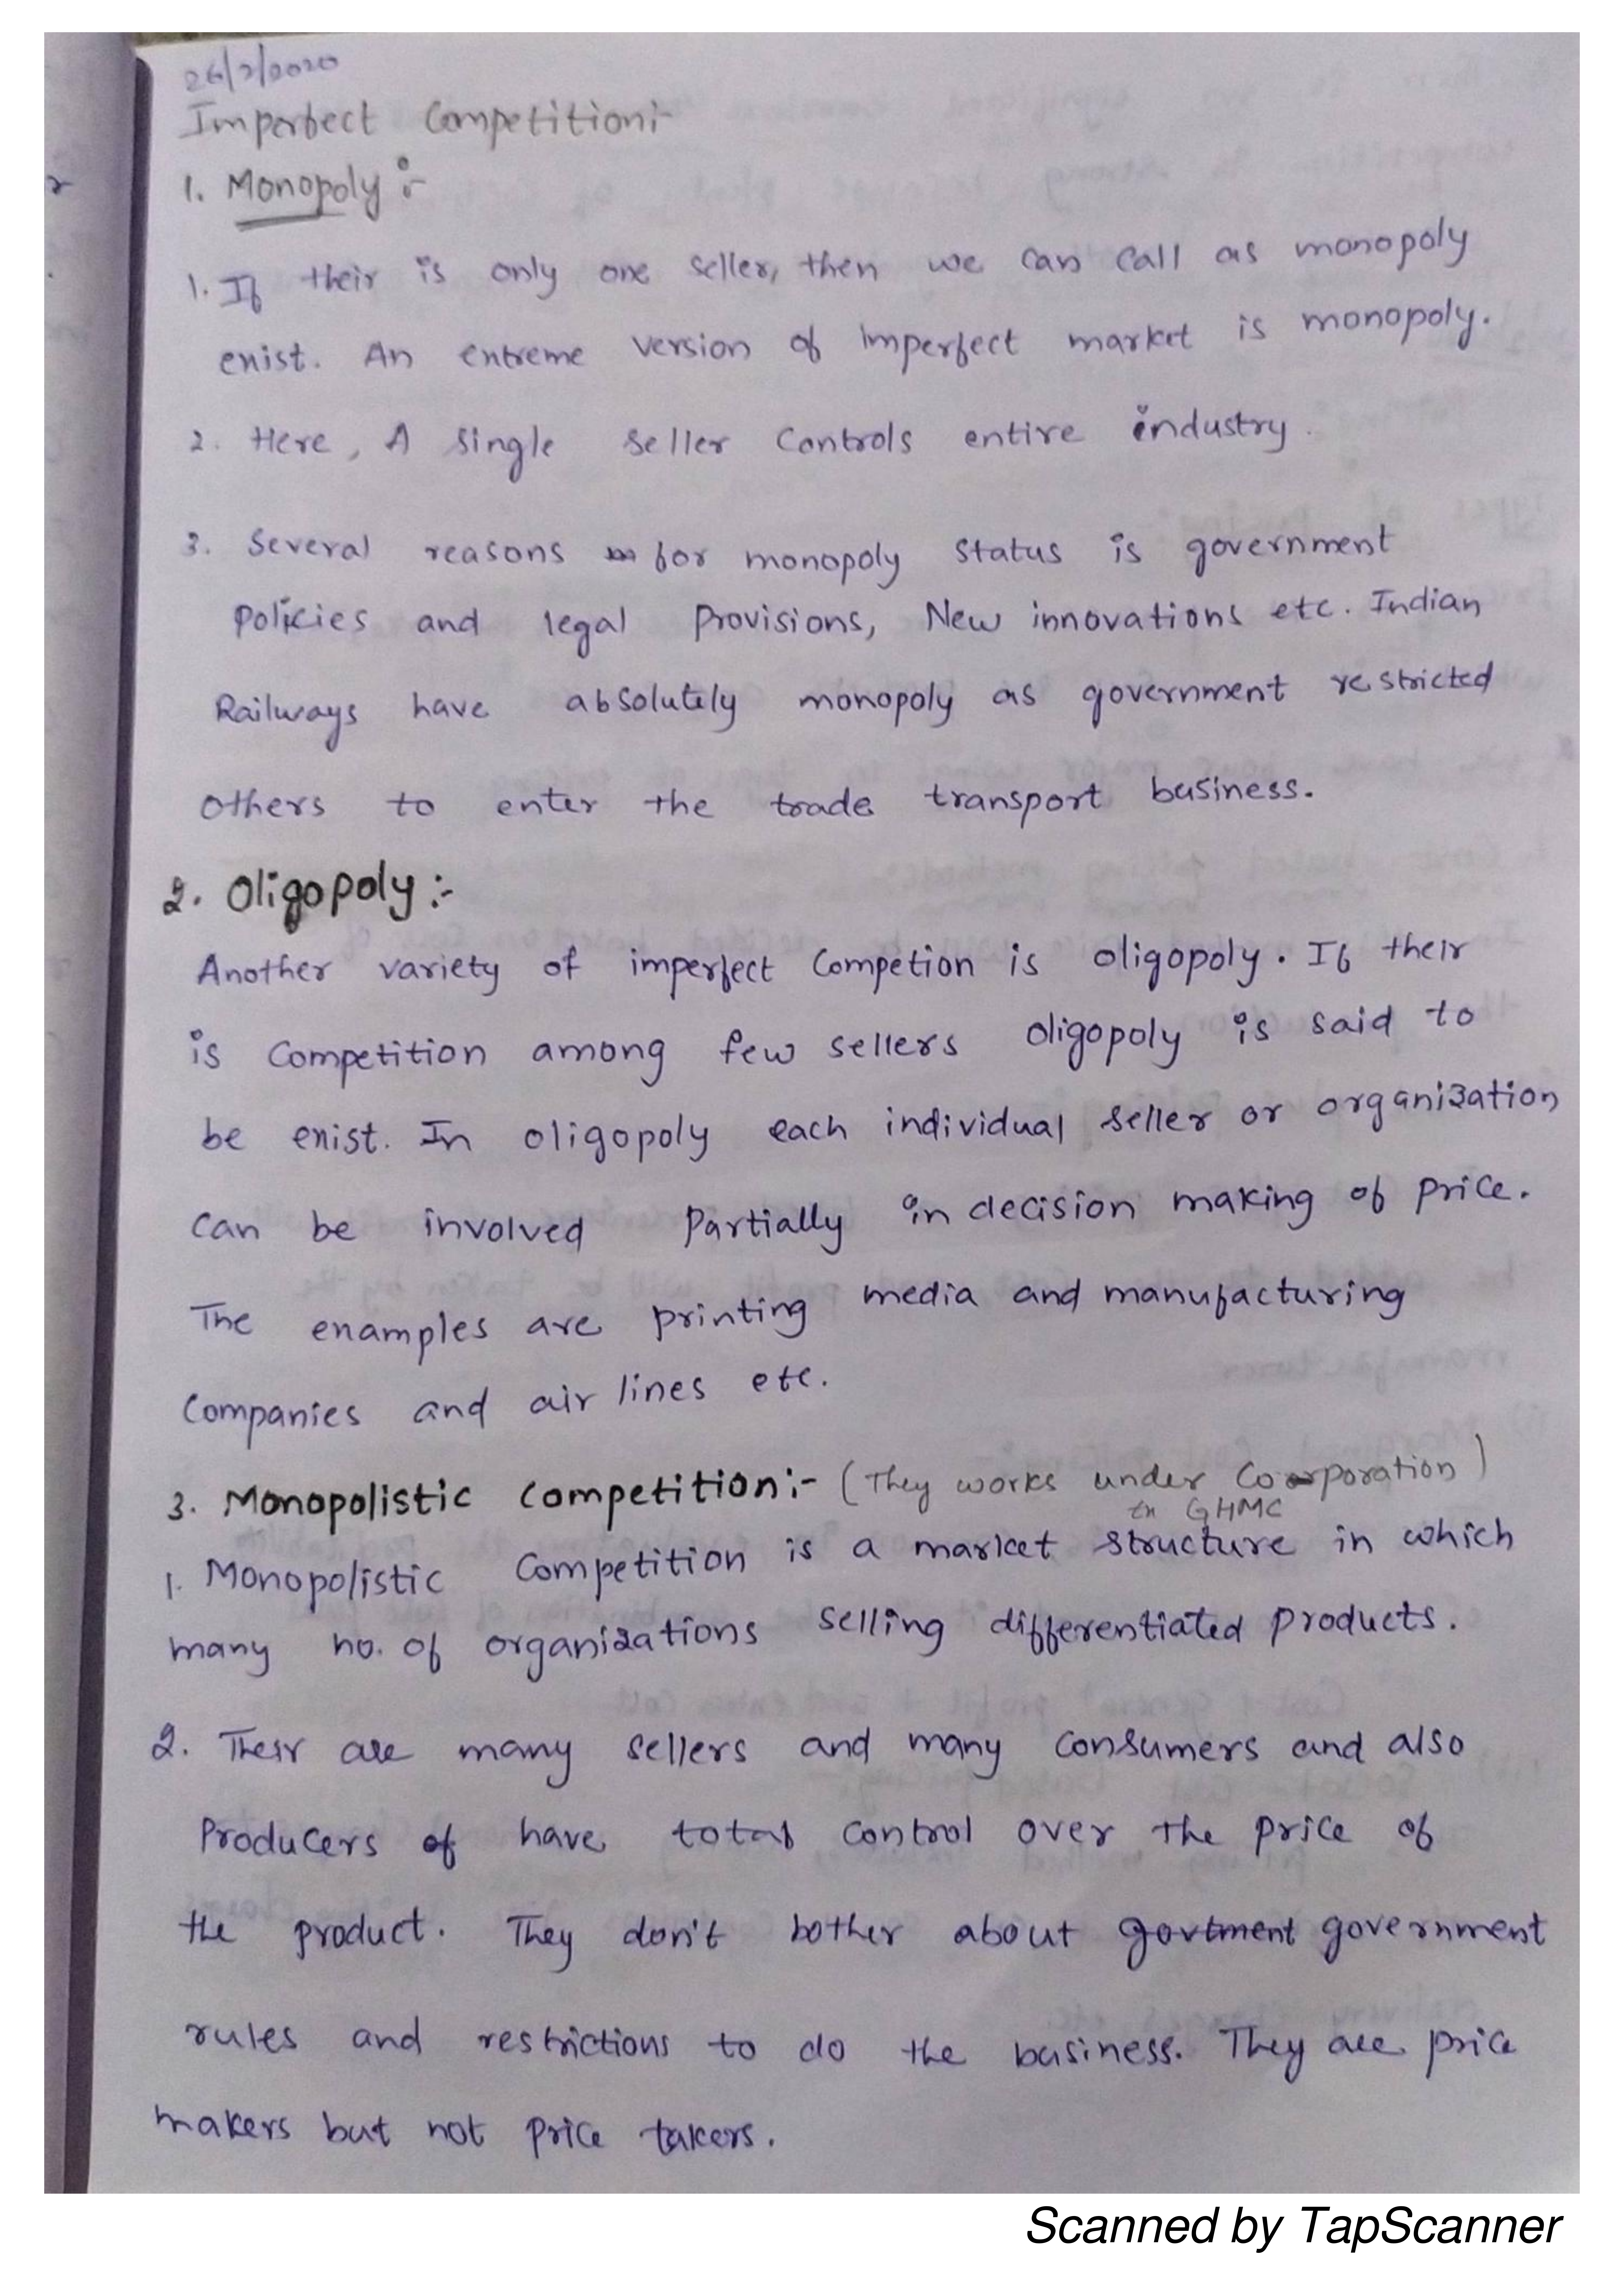 26/2/2020
Imperfect Competition:-
1. Monopoly :-
1. If their is only one seller, then we can call as monopoly
exist. An extreme version of imperfect market is monopoly.
2. Here, A single seller controls entire industry.
3. Several reasons for monopoly status is government
policies and legal provisions, New innovations etc. Indian
Railways have absolutely monopoly as government restricted
others to enter the trade transport business.
2. Oligopoly :-
Another variety of imperfect competion is oligopoly. If their
is competition among few sellers oligopoly is said to
be exist. In oligopoly each individual seller or organization
can be involved partially in decision making of price.
The examples are printing media and manufacturing
companies and air lines etc.
3. Monopolistic competition:- (They works under Coorporation)
in GHMC
1. Monopolistic Competition is a market structure in which
many no. of organizations selling differentiated products.
2. Their are many sellers and many consumers and also
Producers of have total control over the price of
the product. They don't bother about govtment government
rules and restrictions to do the business. They are price
makers but not price takers.
Scanned by TapScanner